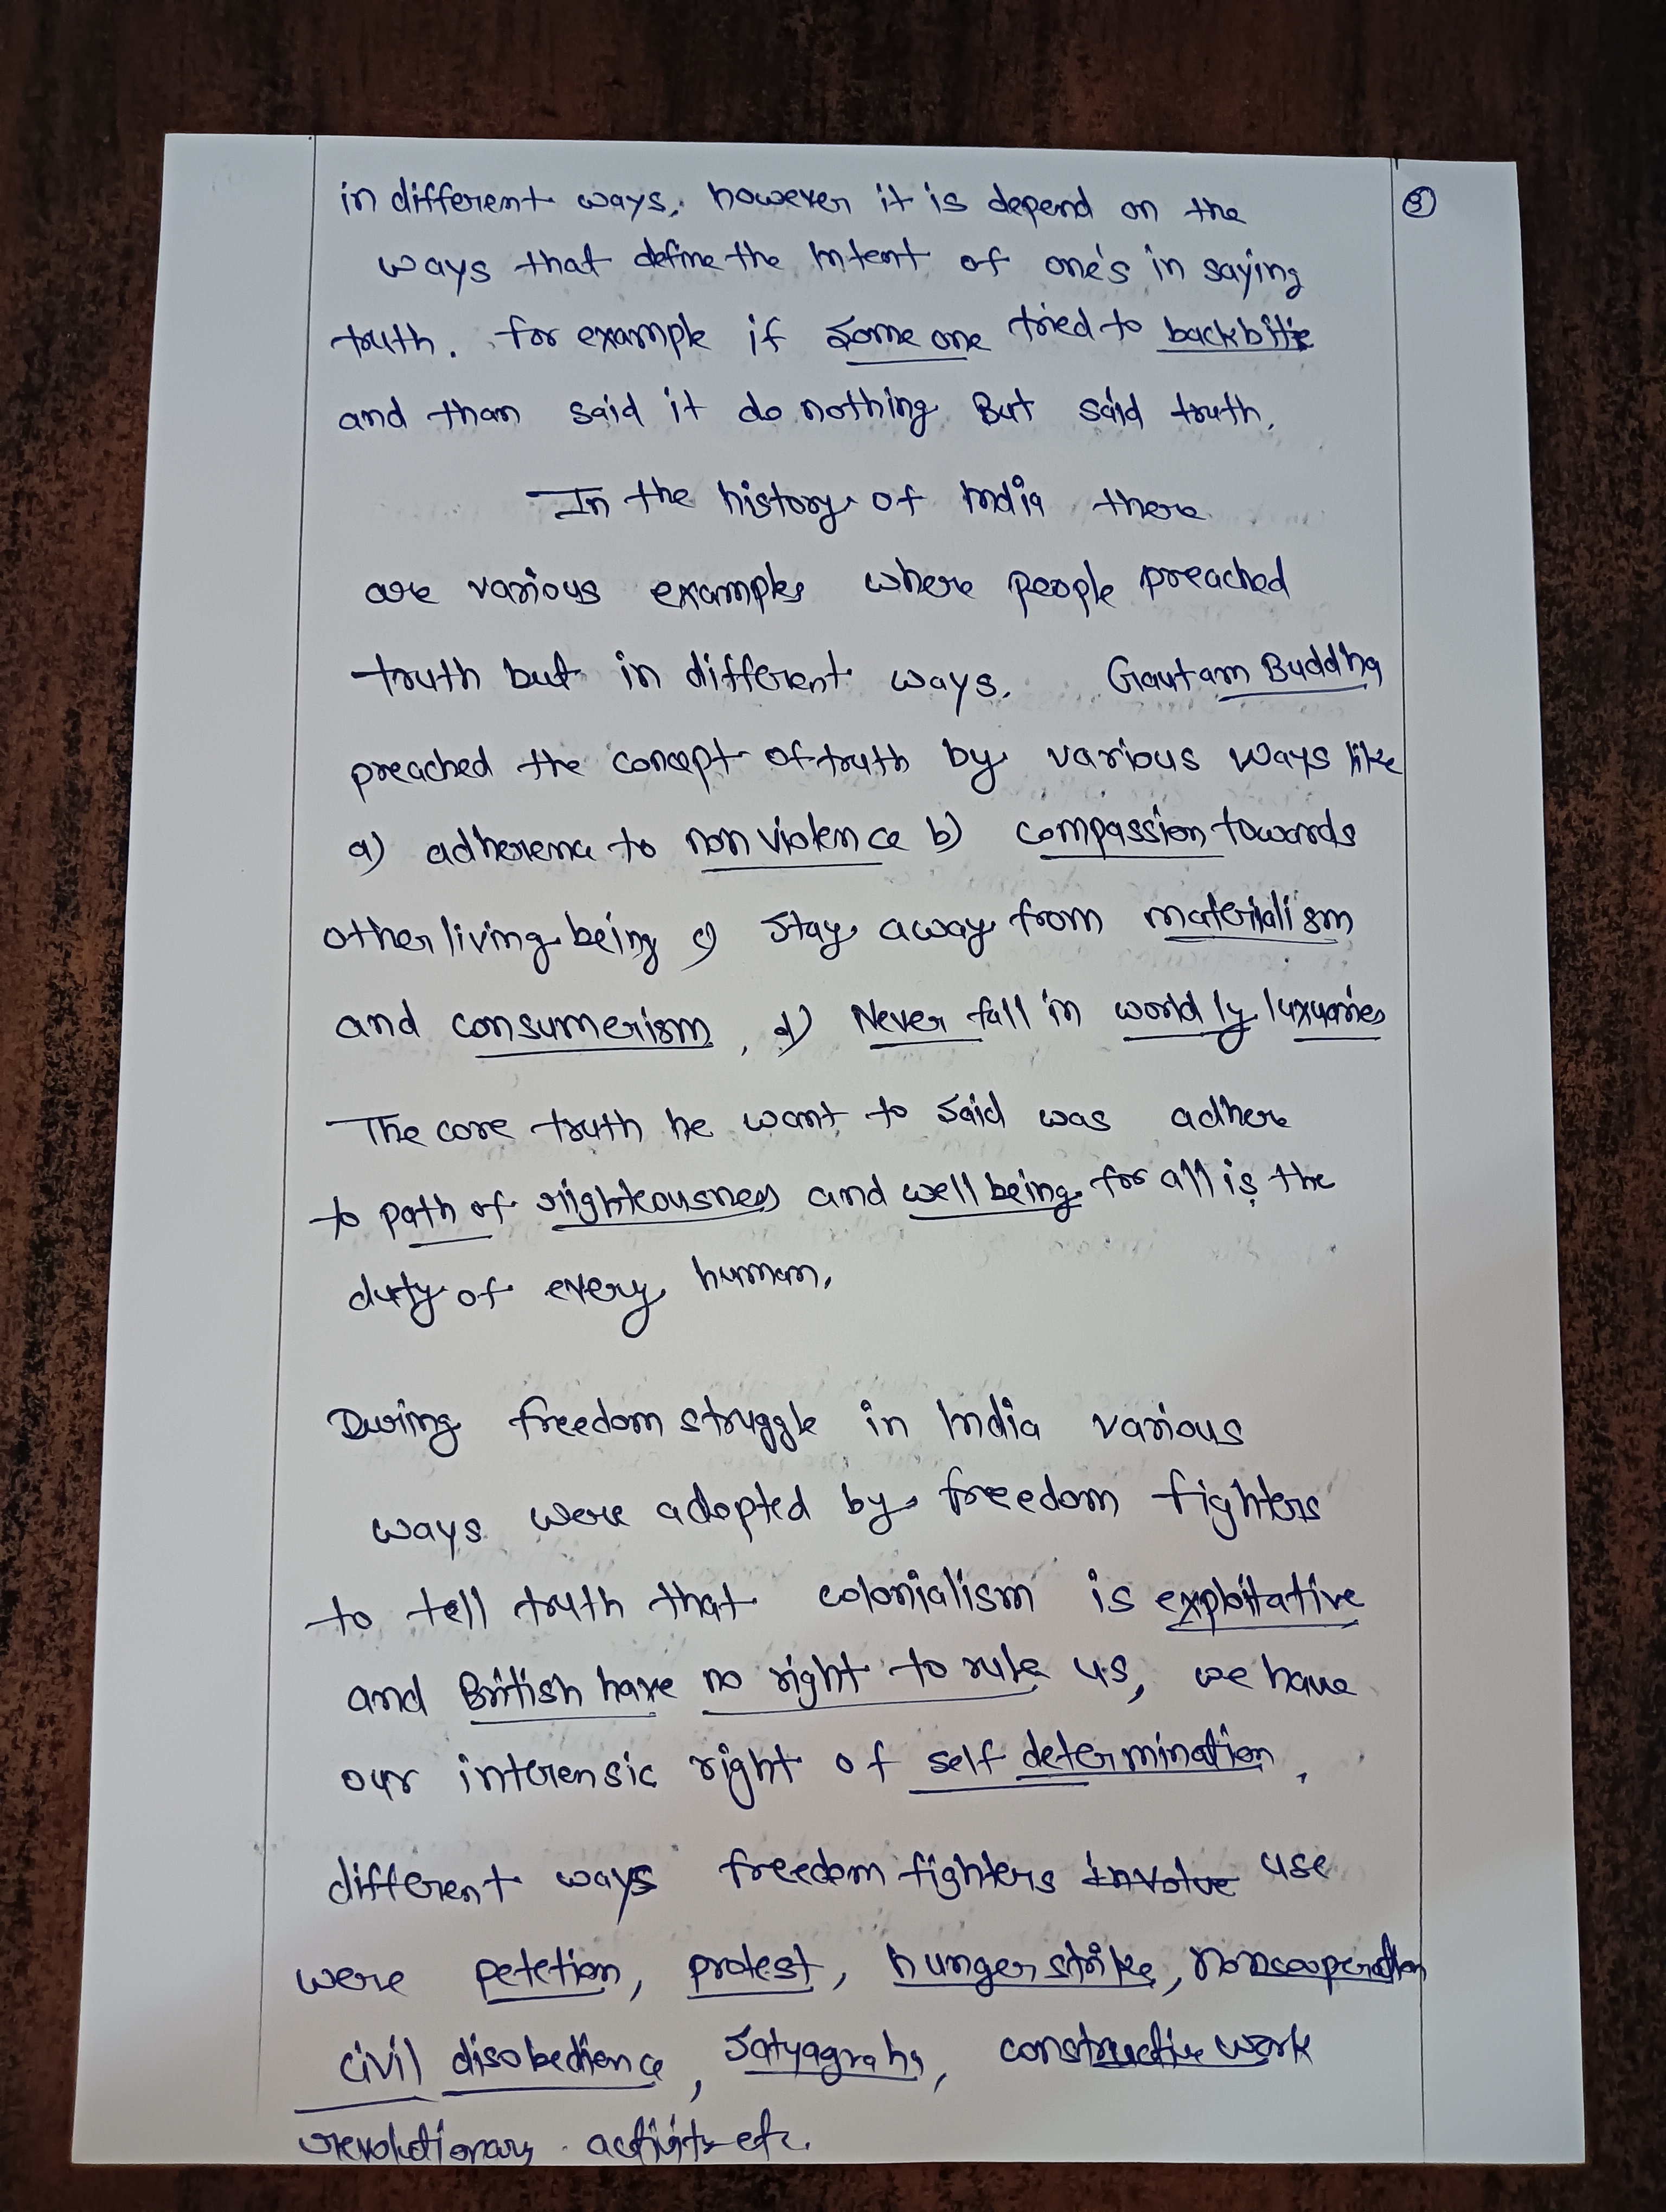 in different ways, however it is depend on the
③
ways that define the Intent of one's in saying
truth. for example if some one tried to backbite
and than said it do nothing But said truth.
In the history of India there
are various examples where people preached
truth but in different ways. Gautam Buddha
preached the concept of truth by various ways like
a) adherence to non violence b) compassion towards
other living being c) stay away from materialism
and consumerism, d) Never fall in worldly luxuries
The core truth he want to said was adhere
to path of righteousness and well being for all is the
duty of every human.
During freedom struggle in India various
ways were adopted by freedom fighters
to tell truth that colonialism is exploitative
and British have no right to rule us, we have
our interensic right of self determination.
different ways freedom fighters involve use
were petetion, protest, hunger strike, noncooperation
civil disobedience, satyagraha, constructive work
revolutionary activity etc.